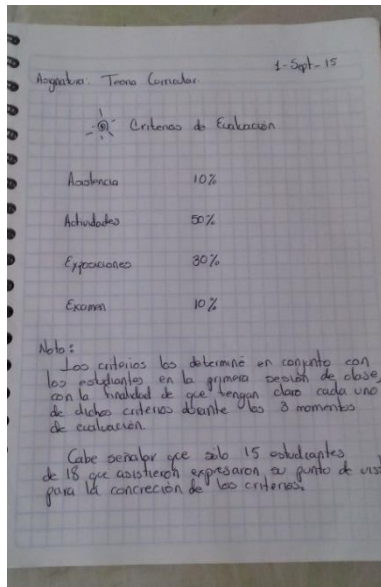 1-Sept-15
Asignatura: Teoría Curricular
Criterios de Evaluación
Asistencia 10%
Actividades 50%
Exposiciones 30%
Examen 10%
Nota:
Los criterios los determiné en conjunto con
los estudiantes en la primera sesión de clase,
con la finalidad de que tengan claro cada uno
de dichos criterios durante los 3 momentos
de evaluación.
Cabe señalar que solo 15 estudiantes
de 18 que asistieron expresaron su punto de vist
para la concreción de los criterios.